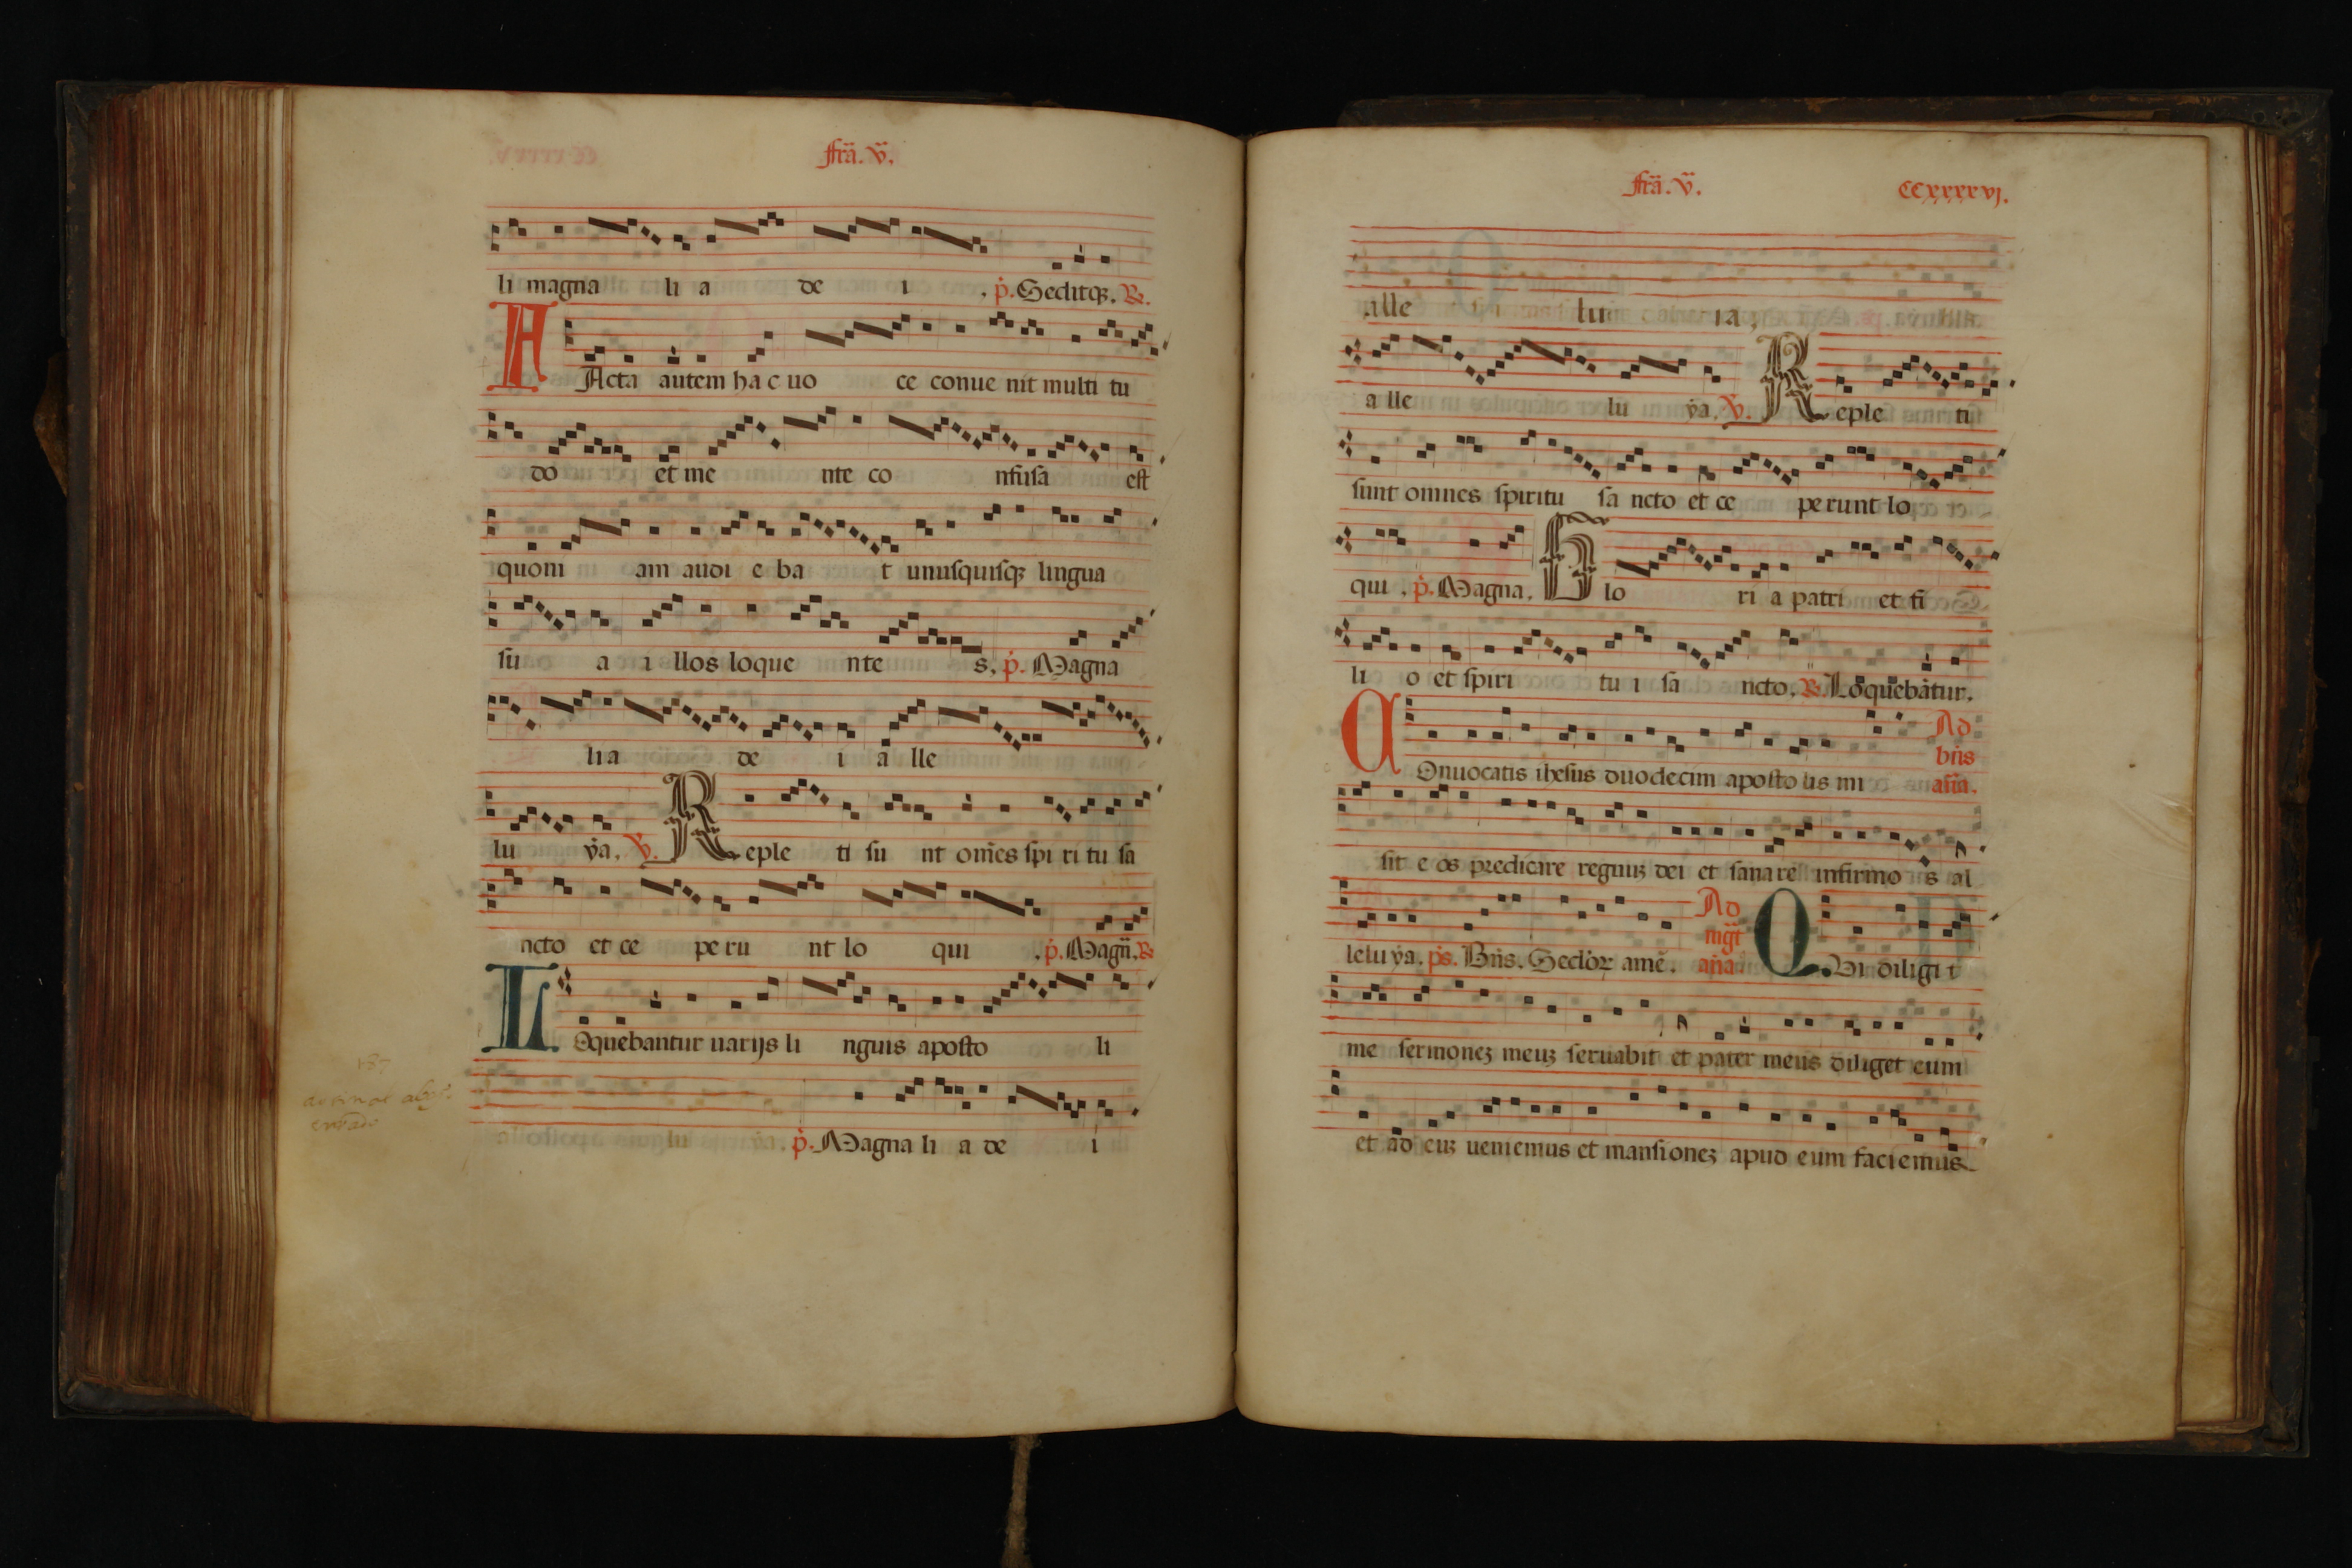 fr̄a. v̄.
li magna li a de i . p̄. Seditq̄. ℟.
FActa autem ha c uo ce conue nit multi tu
do et me nte co nfusa est
quoni am audi e ba t unusquisqȝ lingua
su a i llos loque nte s. p̄. Magna
lia de i a lle
lu ẏa. ℣. Reple ti su nt om̄es spi ri tu sa
ncto et ce pe ru nt lo qui . p̄. Magn̄. ℟
LOquebantur uarijs li nguis aposto li
lu ẏa. p̄. Magna li a de i
fr̄a. v̄. CCxxxxvj.
alle lu ia.
a lle lu ẏa. ℣. Reple ti
sunt omnes spiritu sa ncto et ce pe runt lo
qui . p̄. Magna. Glo ri a patri et fi
li o et spiri tu i sa ncto. ℟. Loquebātur.
COnuocatis ihesus duodecim aposto lis mi
Ad
bn̄s
an̄a.
sit e os predicare regnuȝ dei et sanare infirmo s al
leluẏa. ps. Bn̄s. Seclōꝝ amē.
Ad
mḡt
an̄a
QVi diligi t
me sermoneȝ meuȝ seruabit et pater meus diliget eum
et ad euȝ ueniemus et mansioneȝ apud eum faciemus